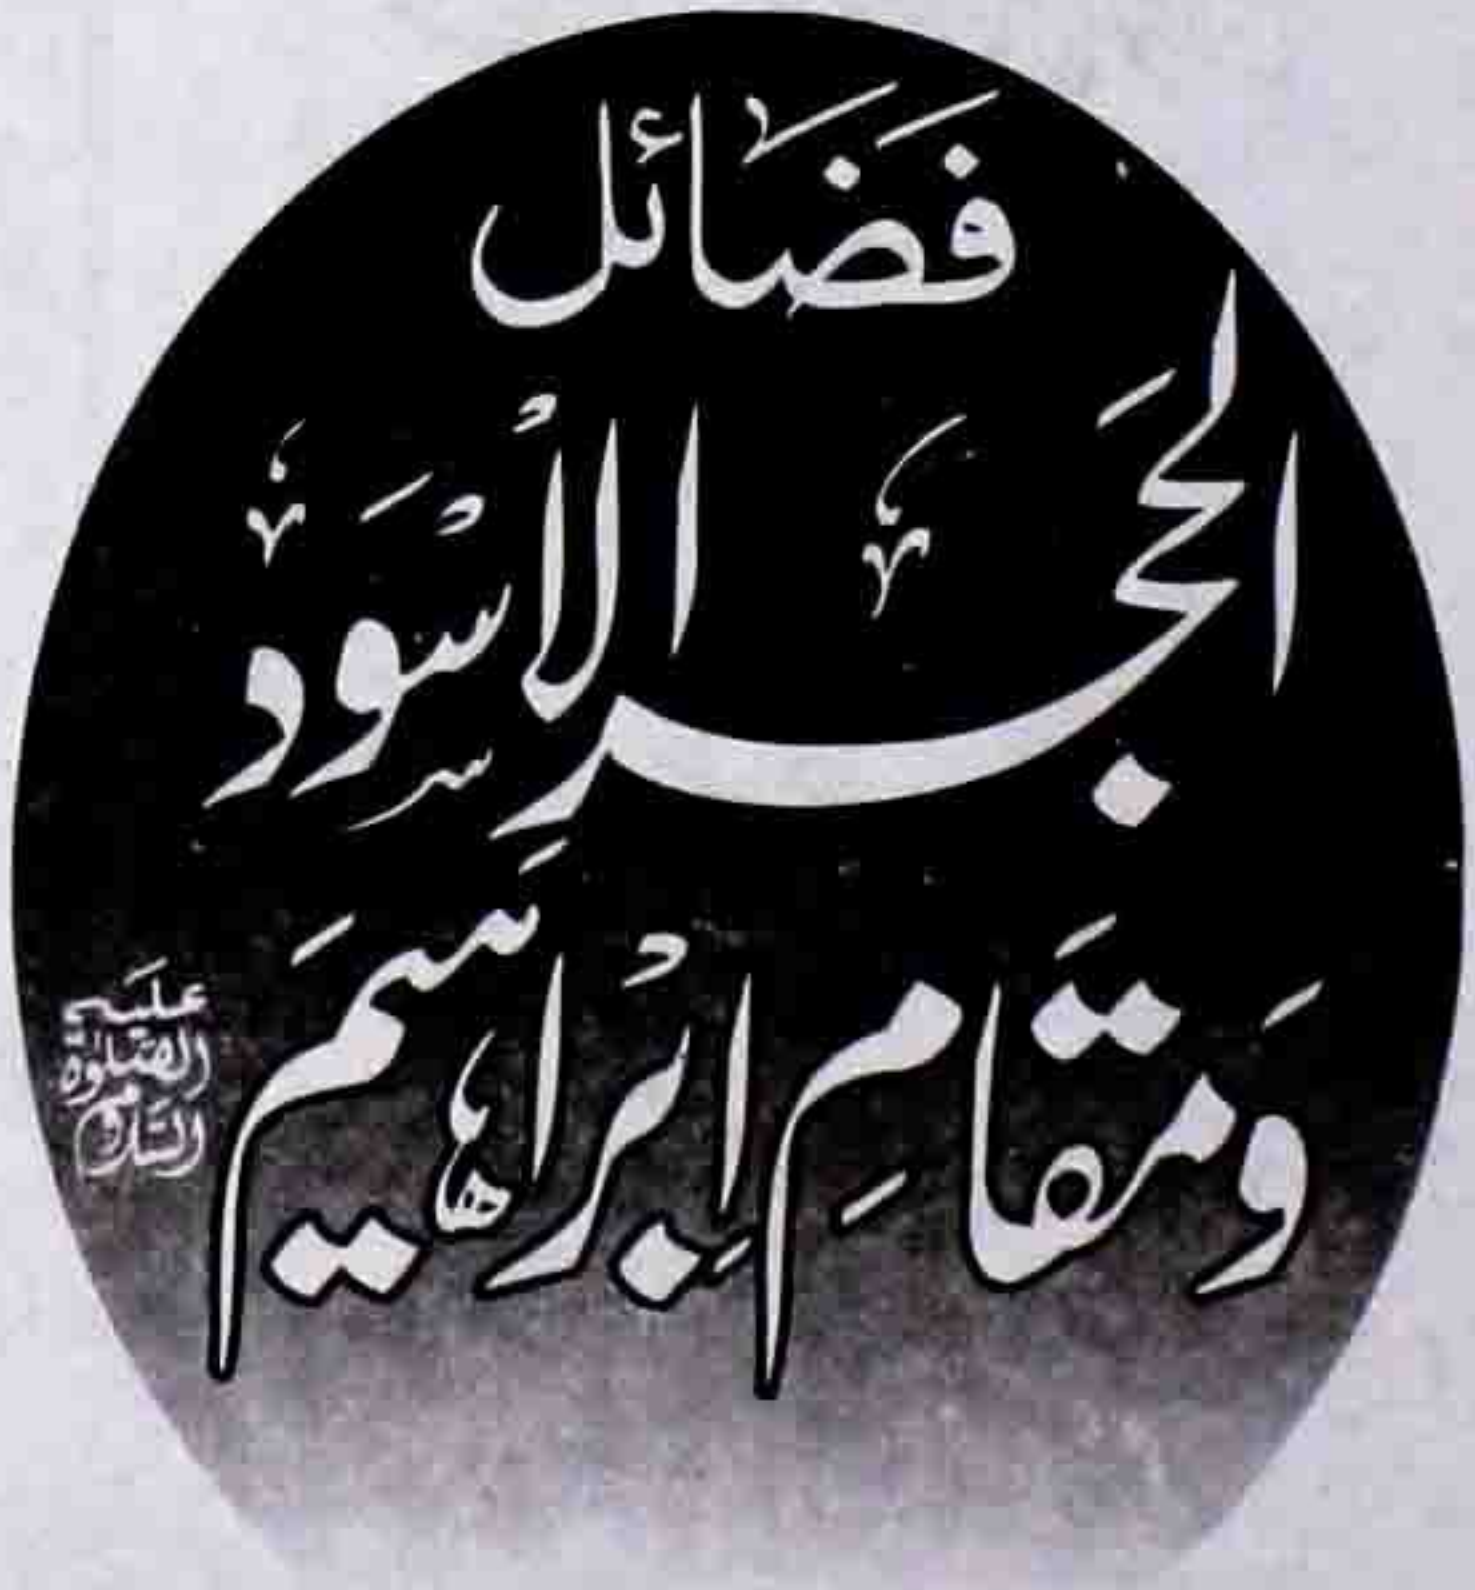 فَضَائل
الحَجَرِ الأَسْوَد
وَمَقَامِ اِبْرَاهِيمَ
عليه
الصلوٰة
والسلام